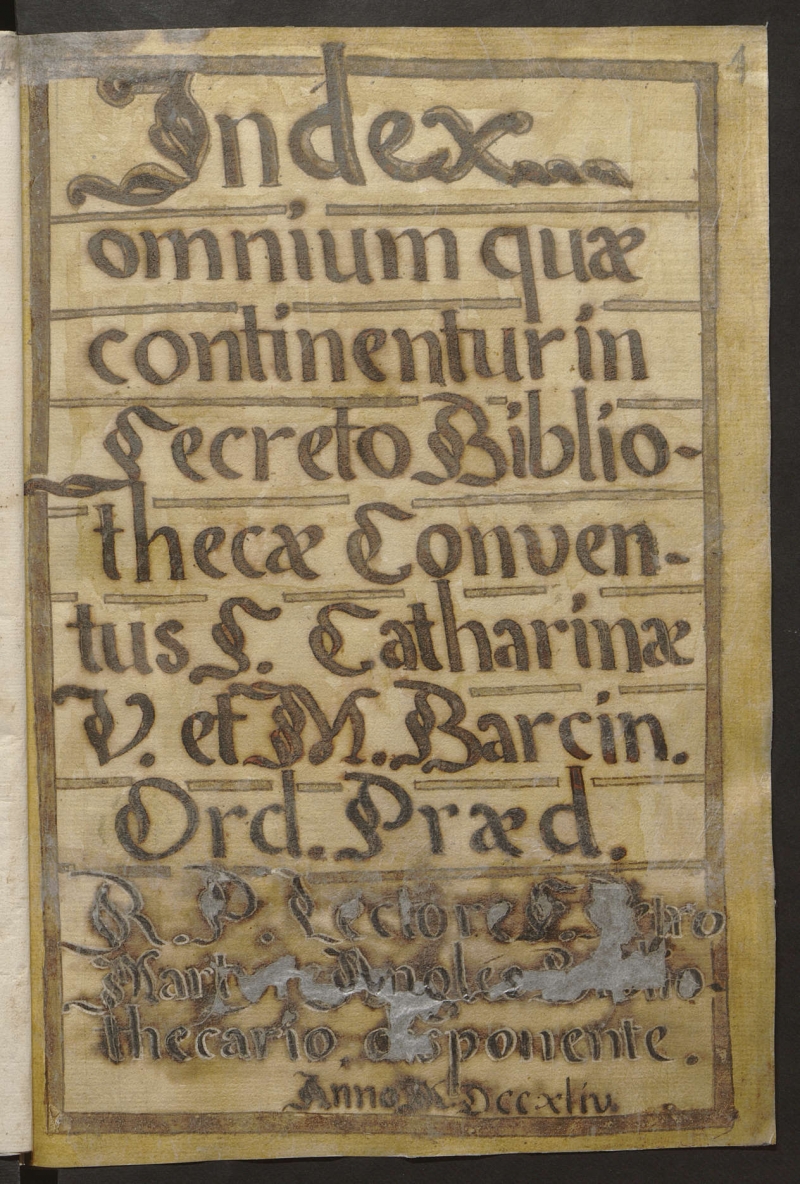 1
Index
omnium quæ
continentur in
Secreto Biblio-
thecæ Conven-
tus S. Catharinæ
V. et M. Barcin.
Ord. Præd.
R. P. Lectore F.
Angles
thecario,
Anno MDCCxliv.